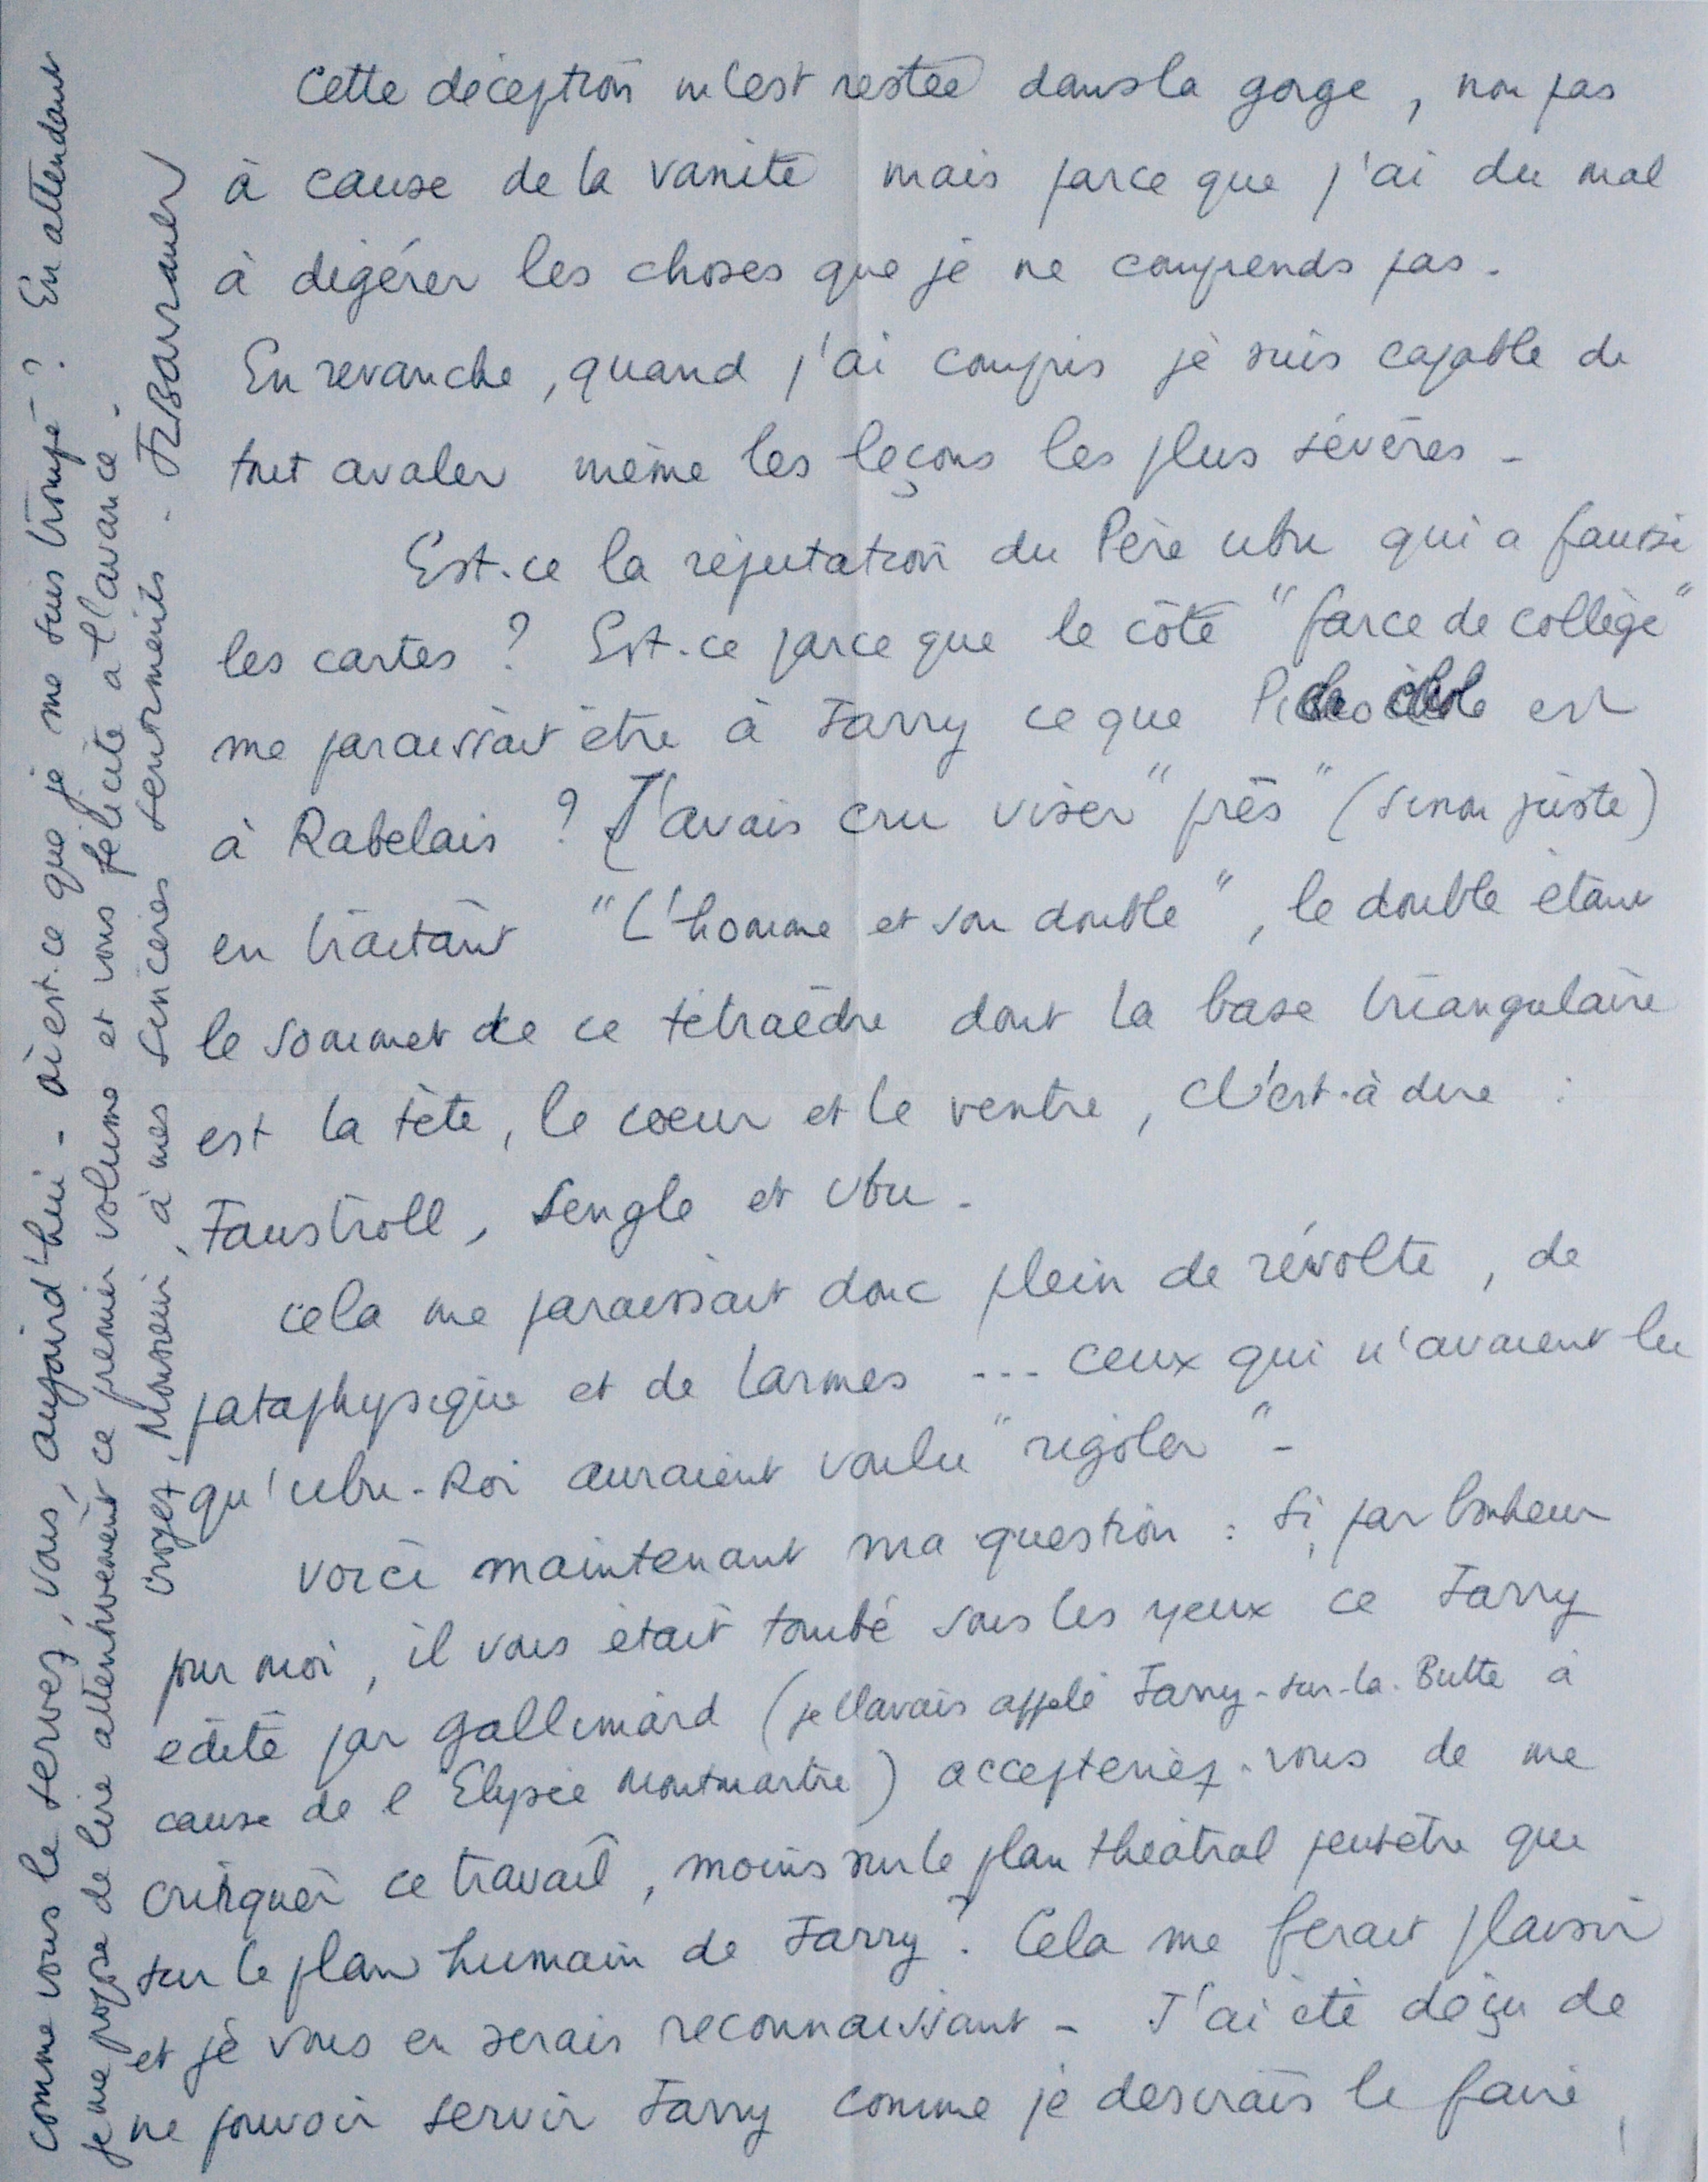 Cette déception m'est restée dans la gorge, non pas
à cause de la vanité mais parce que j'ai du mal
à digérer les choses que je ne comprends pas.
En revanche, quand j'ai compris je suis capable de
tout avaler même les leçons les plus sévères -
Est-ce la réputation du Père Ubu qui a faussé
les cartes ? Est-ce parce que le côté "farce de collège"
me paraissait être à Jarry ce que Picrochole est
à Rabelais ? J'avais cru viser "près" (sinon juste)
en traitant "L'homme et son double", le double étant
le sommet de ce tétraèdre dont la base triangulaire
est la tête, le coeur et le ventre, c'est-à dire :
Faustroll, Sengle et Ubu.
Cela me paraissait donc plein de révolte, de
pataphysique et de larmes ... ceux qui n'avaient lu
qu'Ubu-Roi auraient voulu "rigoler" -
Voici maintenant ma question : Si, par bonheur
pour moi, il vous était tombé sous les yeux ce Jarry
édité par Gallimard (je l'avais appelé Jarry-sur-la-Butte à
cause de l'Elysée Montmartre) accepteriez-vous de me
critiquer ce travail, moins sur le plan théâtral peutêtre que
sur le plan humain de Jarry ? Cela me ferait plaisir
et je vous en serais reconnaissant - J'ai été déçu de
ne pouvoir servir Jarry comme je desirais le faire,
comme vous le servez, vous, aujourd'hui - où est-ce que je me suis trompé ? En attendant
je me propose de lire attentivement ce premier volume et vous félicite à l'avance.
Croyez, Monsieur, à mes sincères sentiments - JLBarrault